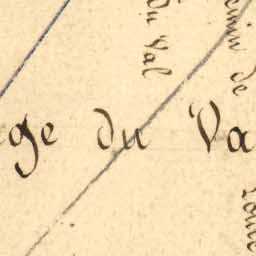 du Val
emin de
ge du Va